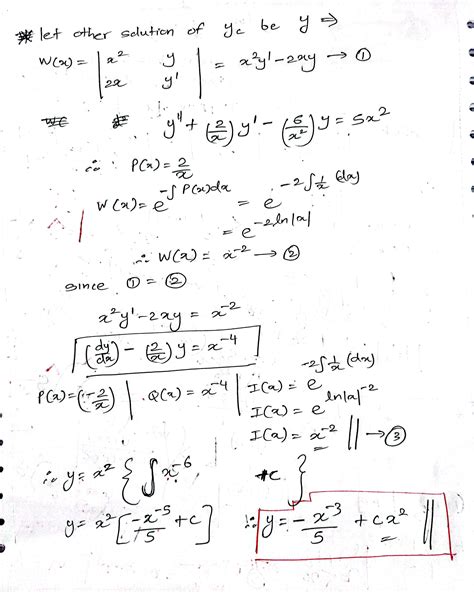 * let other solution of yc be y ⇒
W(x) = | x² y | = x²y' - 2xy → ①
| 2x y' |
y'' + (2/x) y' - (6/x²) y = 5x²
∴ P(x) = 2/x
W(x) = e^(-∫P(x)dx) = e^(-2∫1/x (dx))
= e^(-2ln|x|)
∴ W(x) = x⁻² → ②
since ① = ②
x²y' - 2xy = x⁻²
(dy/dx) - (2/x) y = x⁻⁴
P(x) = (-2/x) | Q(x) = x⁻⁴ | I(x) = e^(-2∫1/x (dx))
I(x) = e^(ln|x|⁻²)
I(x) = x⁻² || → ③
∴ y = x² { ∫ x⁻⁶ +c }
y = x² [ -x⁻⁵/5 + c ] ∴ y = - x⁻³/5 + cx² ||